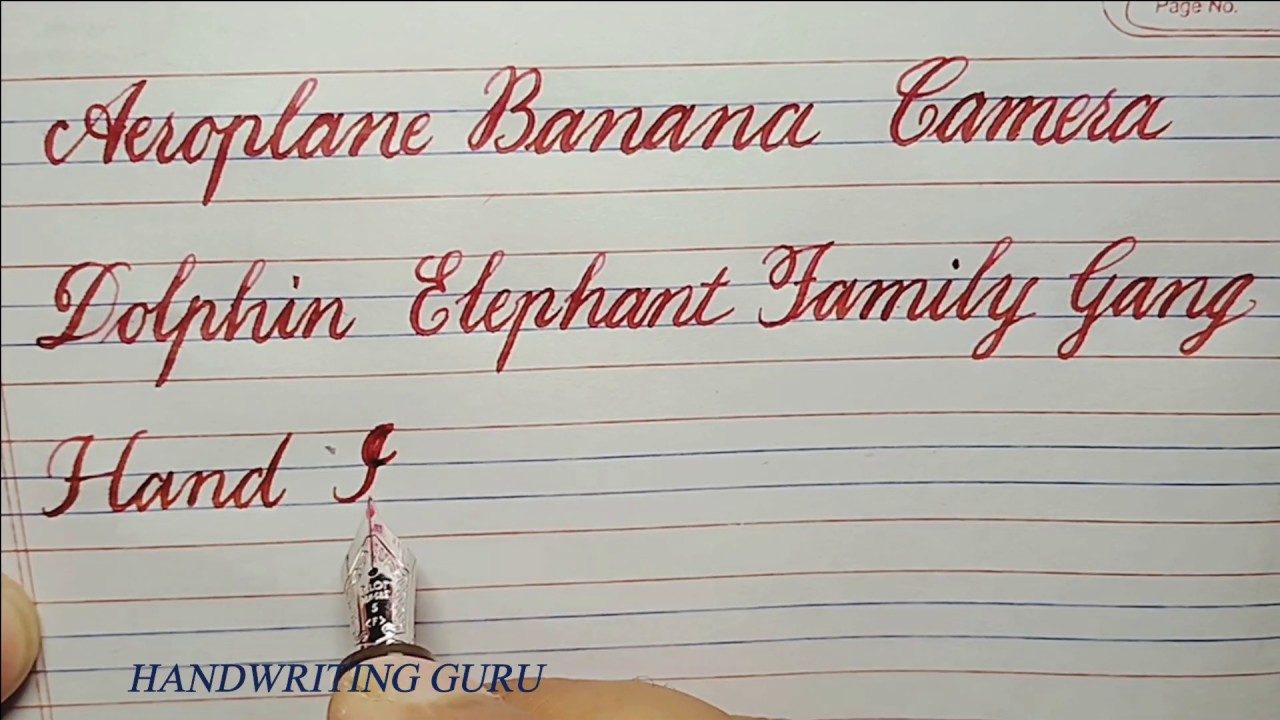 Page No.
Aeroplane Banana Camera
Dolphin Elephant Family Gang
Hand I
HANDWRITING GURU